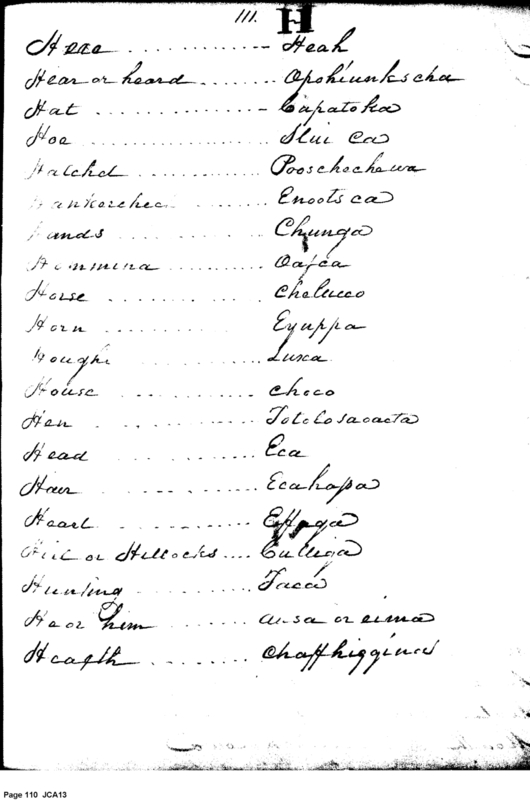 111. H
Here ............ Heah
Hear or heard ........ Opohiunkscha
Hat ............ Capatoka
Hoe ............ Slui Ca
Hatchet ............ Pooschochewa
Hankercheef ........ Enoots ca
Hands ............ Chunga
Hommina ............ Oafca
Horse ............ Chelucco
Horn ............ Eyuppa
............ Luxa
House ............ Choco
Hen ............
Head ............ Eca
Hair ............ Ecahapa
Heart ............
Hill or Hillocks .... Culliga
Hunting ............ Faca
He or him ........ ausa or eima
Health ........ Chaffhiggina
Page 110 JCA13